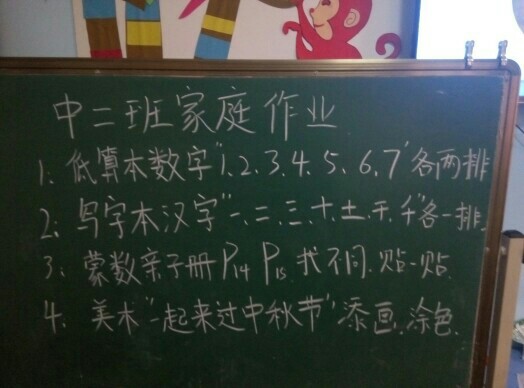 中二班家庭作业
1、低算本数字"1、2、3、4、5、6、7"各两排
2、写字本汉字"一、二、三、十、土、干、千"各一排
3、蒙数亲子册P14 P15 找不同、贴一贴
4、美术"一起来过中秋节"添画、涂色